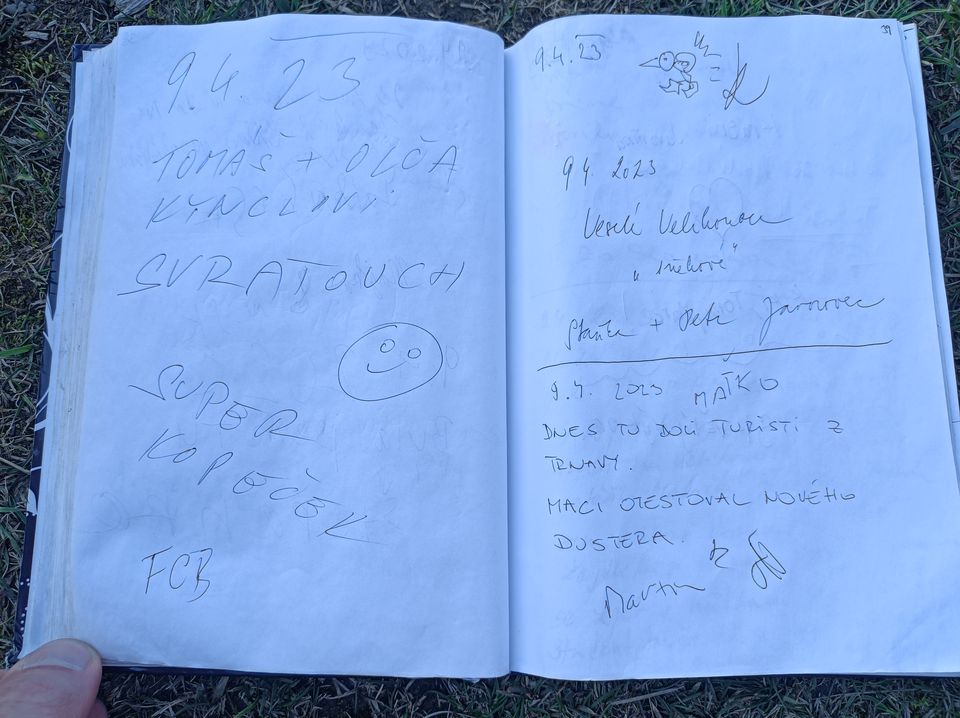 9. 4. 23
TOMAŠ + OLČA
KYNCLOVI
SVRATOUCH
SUPER
KOPEČEK
FCB
39
9.4.23
9 4. 2023
Veselé Velikonoce
Petr Javorovec
9.4. 2023 MAŤKO
DNES TU BOLI TURISTI Z
TRNAVY.
MACI OTESTOVAL NOVÉHO
DUSTERA.
Martin